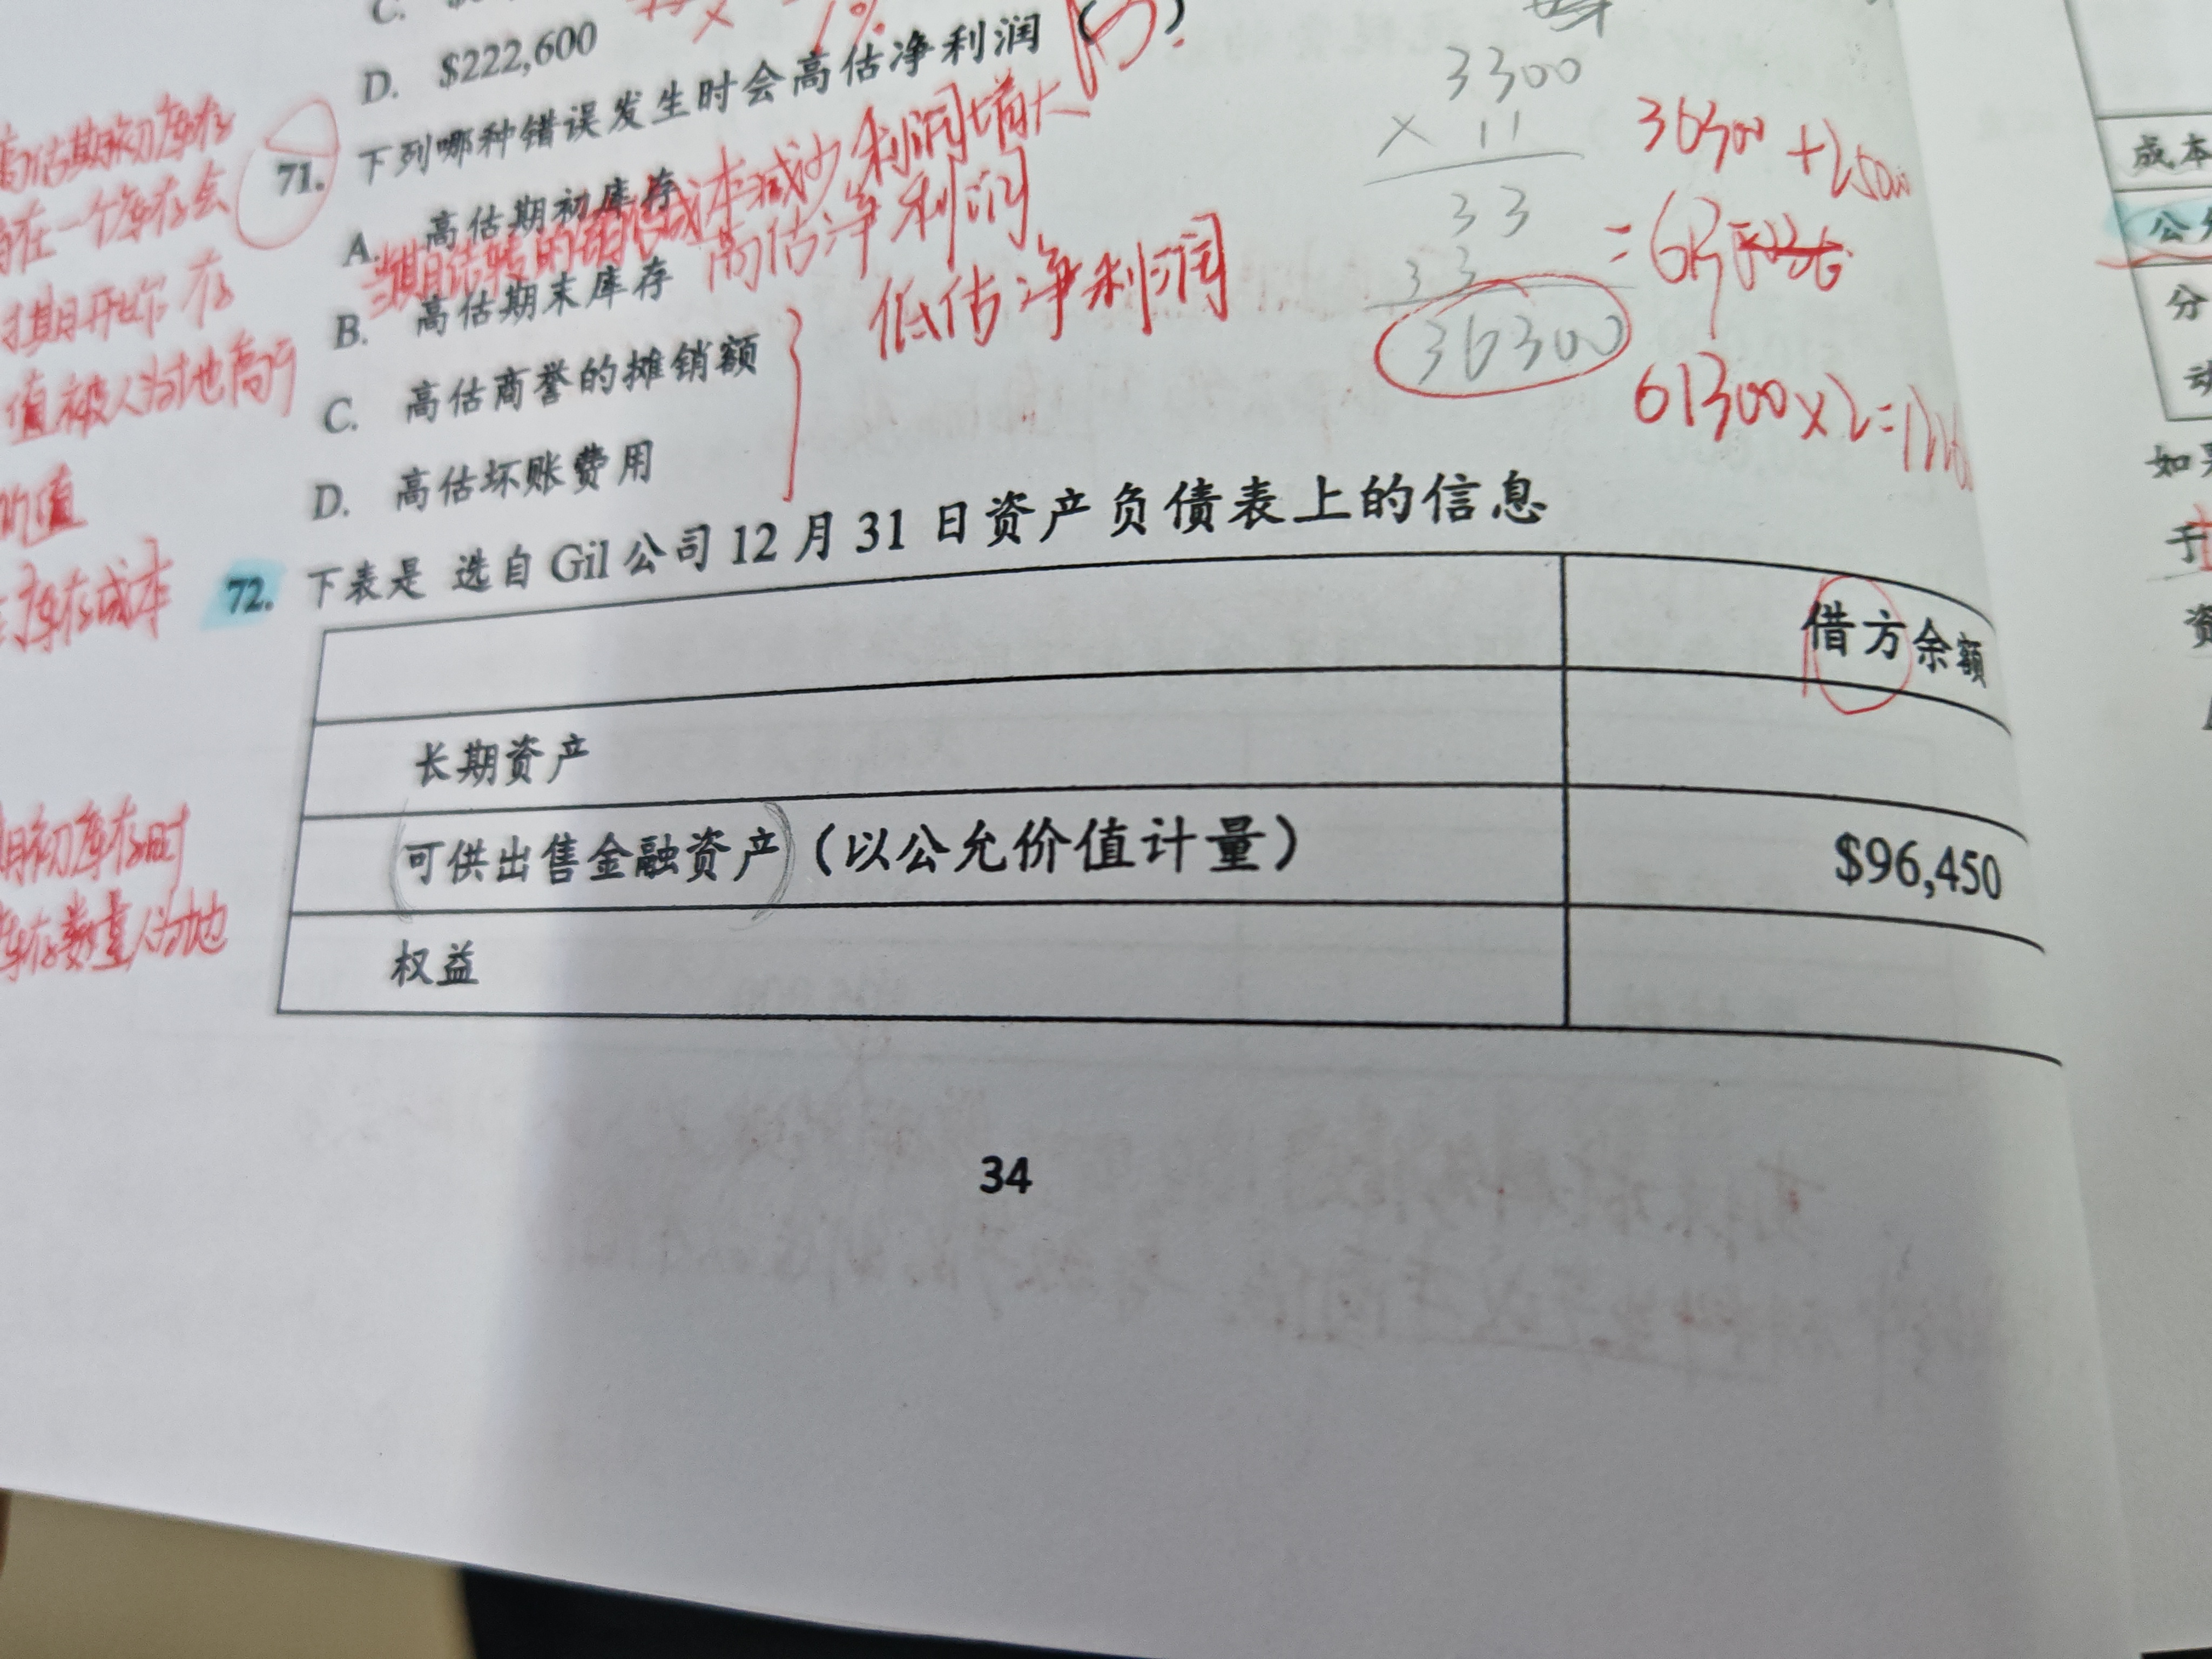 C.
D. $222,600
71. 下列哪种错误发生时会高估净利润 ( )
A. 高估期初库存
成本减少 利润增大
B. 高估期末库存 高估净利润
C. 高估商誉的摊销额
D. 高估坏账费用
低估净利润
3300
× 11
33
33
36300
36300
61300×2=
72. 下表是 选自 Gil 公司 12 月 31 日资产负债表上的信息
借方余额
长期资产
可供出售金融资产（以公允价值计量） $96,450
权益
34
高估期初库存
在一个库存会
期开始 存
值被人为地高
的值
库存成本
期初库存时
库存数量人为地
成本
公
分
动
如
于
资